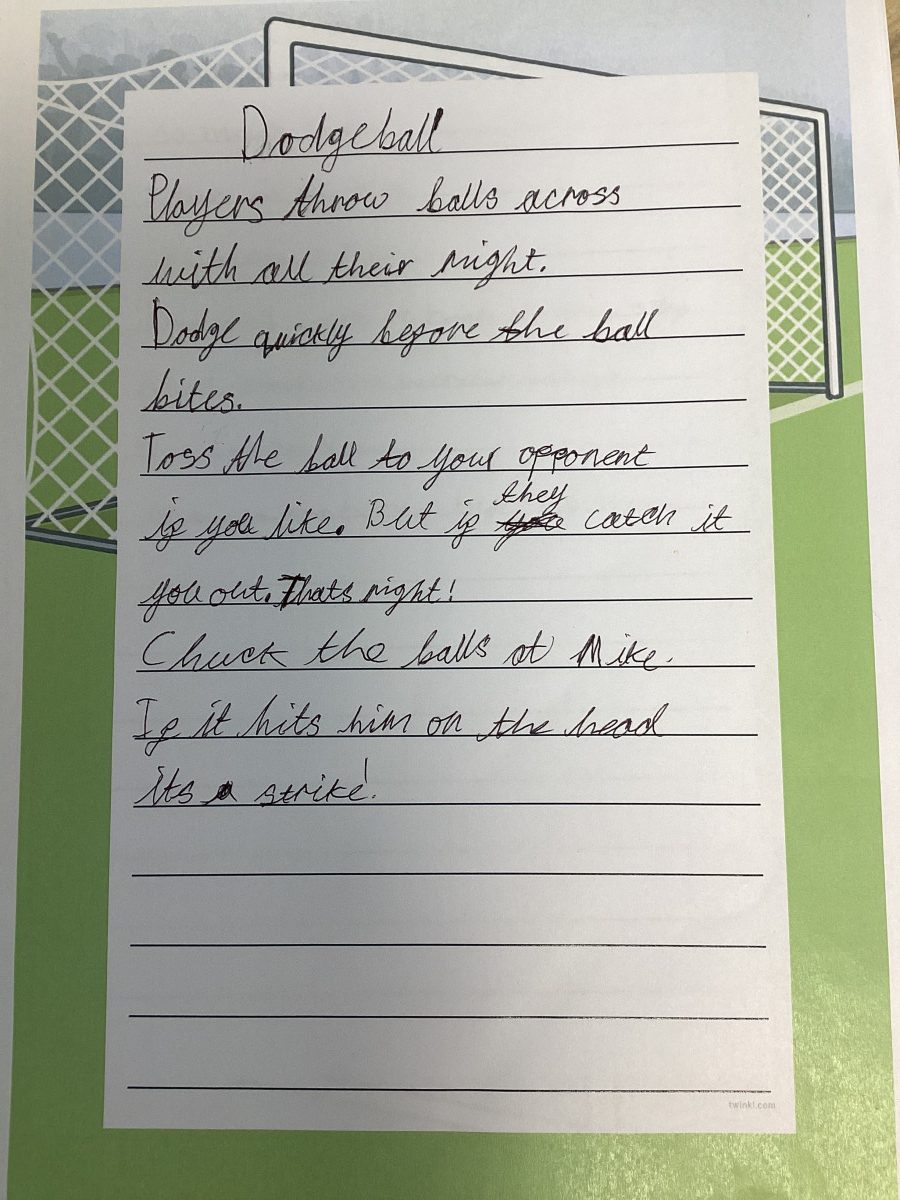 Dodgeball
Players throw balls across
with all their might.
Dodge quickly before the ball
bites.
Toss the ball to your opponent
if you like. But if they catch it
you out. Thats right!
Chuck the balls at Mike.
If it hits him on the head
its a strike!
twinkl.com